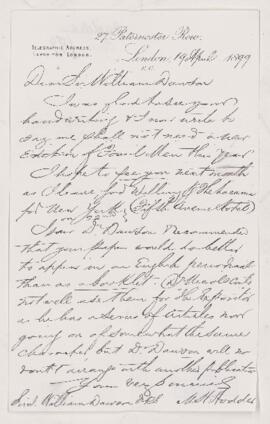 27 Paternoster Row,
TELEGRAPHIC ADDRESS,
LONDON.
London, 19 April 1899
E.C.
Dear Sir William Dawson
I was glad to see your
handwriting & I now write to
say we shall not need a new
Edition of Fossil Men this year
I hope to see you next month
as I leave for
for New York (Fifth Avenue Hotel)
on
Dr Dawson recommended
that your paper would be better
to appear in our English periodical
than as a booklet - Dr Nicoll can
not well use them for the Expositor
as he has a series of articles now
going on of somewhat the same
character but Dr Dawson will no
doubt arrange with another publication
Yours very sincerely
Sir William Dawson
M H Hodder